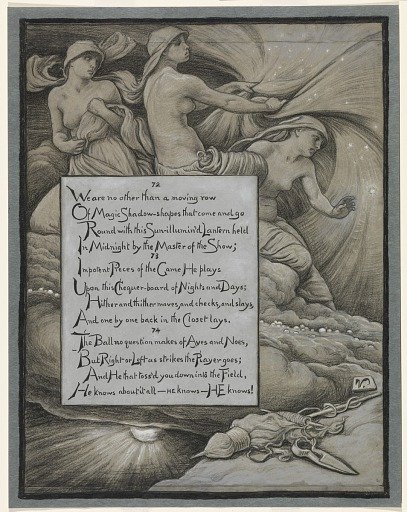 72
We are no other than a moving row
Of Magic Shadow-shapes that come and go
Round with this Sun-illumin'd Lantern held
In Midnight by the Master of the Show;
73
Impotent Pieces of the Game He plays
Upon this Chequer-board of Nights and Days;
Hither and thither moves, and checks, and slays,
And one by one back in the Closet lays.
74
The Ball no question makes of Ayes and Noes,
But Right or Left as strikes the Player goes;
And He that toss'd you down into the Field,
He knows about it all—HE knows—HE knows!